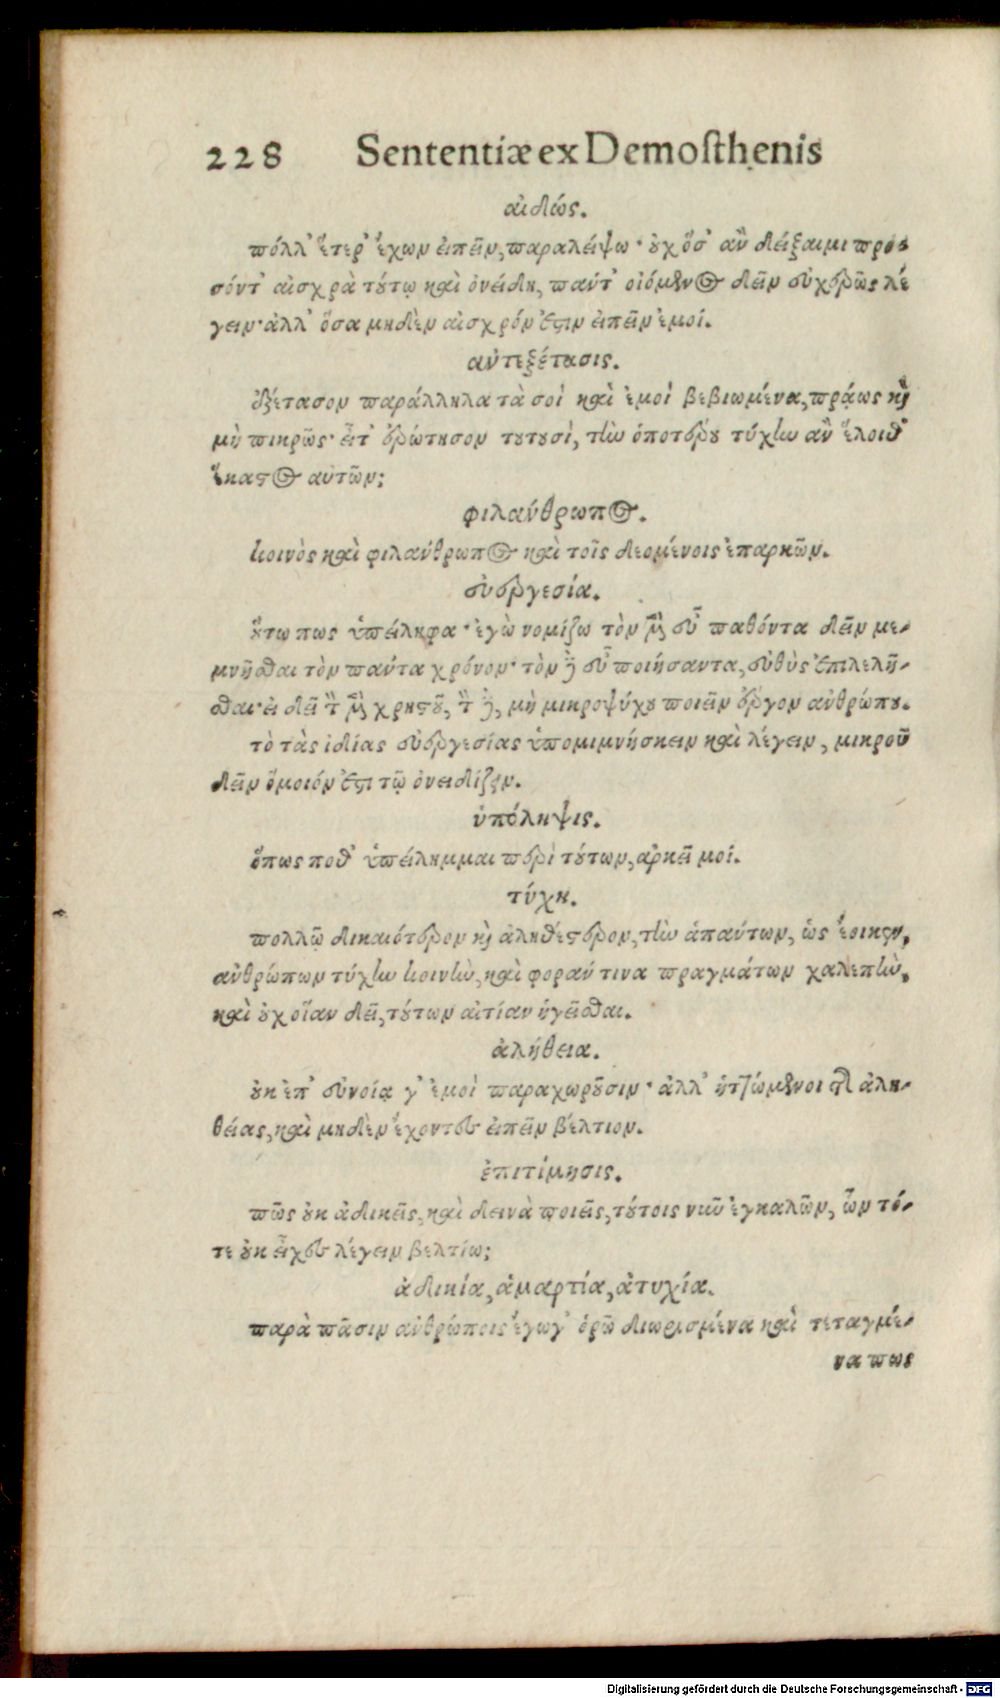 228 Sententiæ ex Demosthenis
αἰδώς.
πόλλ' ἕτερ' ἔχων εἰπεῖν, παραλείψω· οὐχ ὅσ' ἂν δείξαιμι προσ
σόντ' αἰσχρὰ τούτῳ καὶ ὀνείδη, πάντ' οἰόμενος δεῖν εὐχερῶς λέ
γειν· ἀλλ' ὅσα μηδὲν αἰσχρόν ἐστιν εἰπεῖν ἐμοί.
ἀντεξέτασις.
ἐξέτασον παράλληλα τὰ σοὶ καὶ ἐμοὶ βεβιωμένα, πράως καὶ
μὴ πικρῶς· εἶτ' ἐρώτησον τουτουσὶ, τὴν ὁποτέρου τύχην ἂν ἕλοιθ'
ἕκαστος αὐτῶν;
φιλάνθρωπος.
κοινὸς καὶ φιλάνθρωπος καὶ τοῖς δεομένοις ἐπαρκῶν.
εὐεργεσία.
οὕτω πως ὑπείληφα· ἐγὼ νομίζω τὸν μὲν εὖ παθόντα δεῖν με-
μνῆσθαι τὸν πάντα χρόνον· τὸν δὲ εὖ ποιήσαντα, εὐθὺς ἐπιλελῆ-
σθαι· εἰ δεῖ τὸν μὲν χρηστοῦ, τὸν δὲ, μὴ μικροψύχου ποιεῖν ἔργον ἀνθρώπου.
τὸ τὰς ἰδίας εὐεργεσίας ὑπομιμνήσκειν καὶ λέγειν, μικροῦ
δεῖν ὅμοιόν ἐστι τῷ ὀνειδίζειν.
ὑπόληψις.
ὅπως ποθ' ὑπείλημμαι περὶ τούτων, ἀρκεῖ μοί.
τύχη.
πολλῷ δικαιότερον καὶ ἀληθέστερον, τὴν ἁπάντων, ὡς ἔοικεν,
ἀνθρώπων τύχην κοινὴν, καὶ φοράν τινα πραγμάτων χαλεπὴν,
καὶ οὐχ οἵαν δεῖ, τούτων αἰτίαν ἡγεῖσθαι.
ἀλήθεια.
οὐκ ἐπ' εὐνοίᾳ γ' ἐμοὶ παραχωροῦσιν· ἀλλ' ἡττώμενοι τῆς ἀλη-
θείας, καὶ μηδὲν ἔχοντες εἰπεῖν βέλτιον.
ἐπιτίμησις.
πῶς οὐκ ἀδικεῖς, καὶ δεινὰ ποιεῖς, τούτοις νῦν ἐγκαλῶν, ὧν τό-
τε οὐκ εἶχες λέγειν βελτίω;
ἀδικία, ἁμαρτία, ἀτυχία.
παρὰ πᾶσιν ἀνθρώποις ἔγωγ' ὁρῶ διωρισμένα καὶ τεταγμέ-
να πως
Digitalisierung gefördert durch die Deutsche Forschungsgemeinschaft - DFG